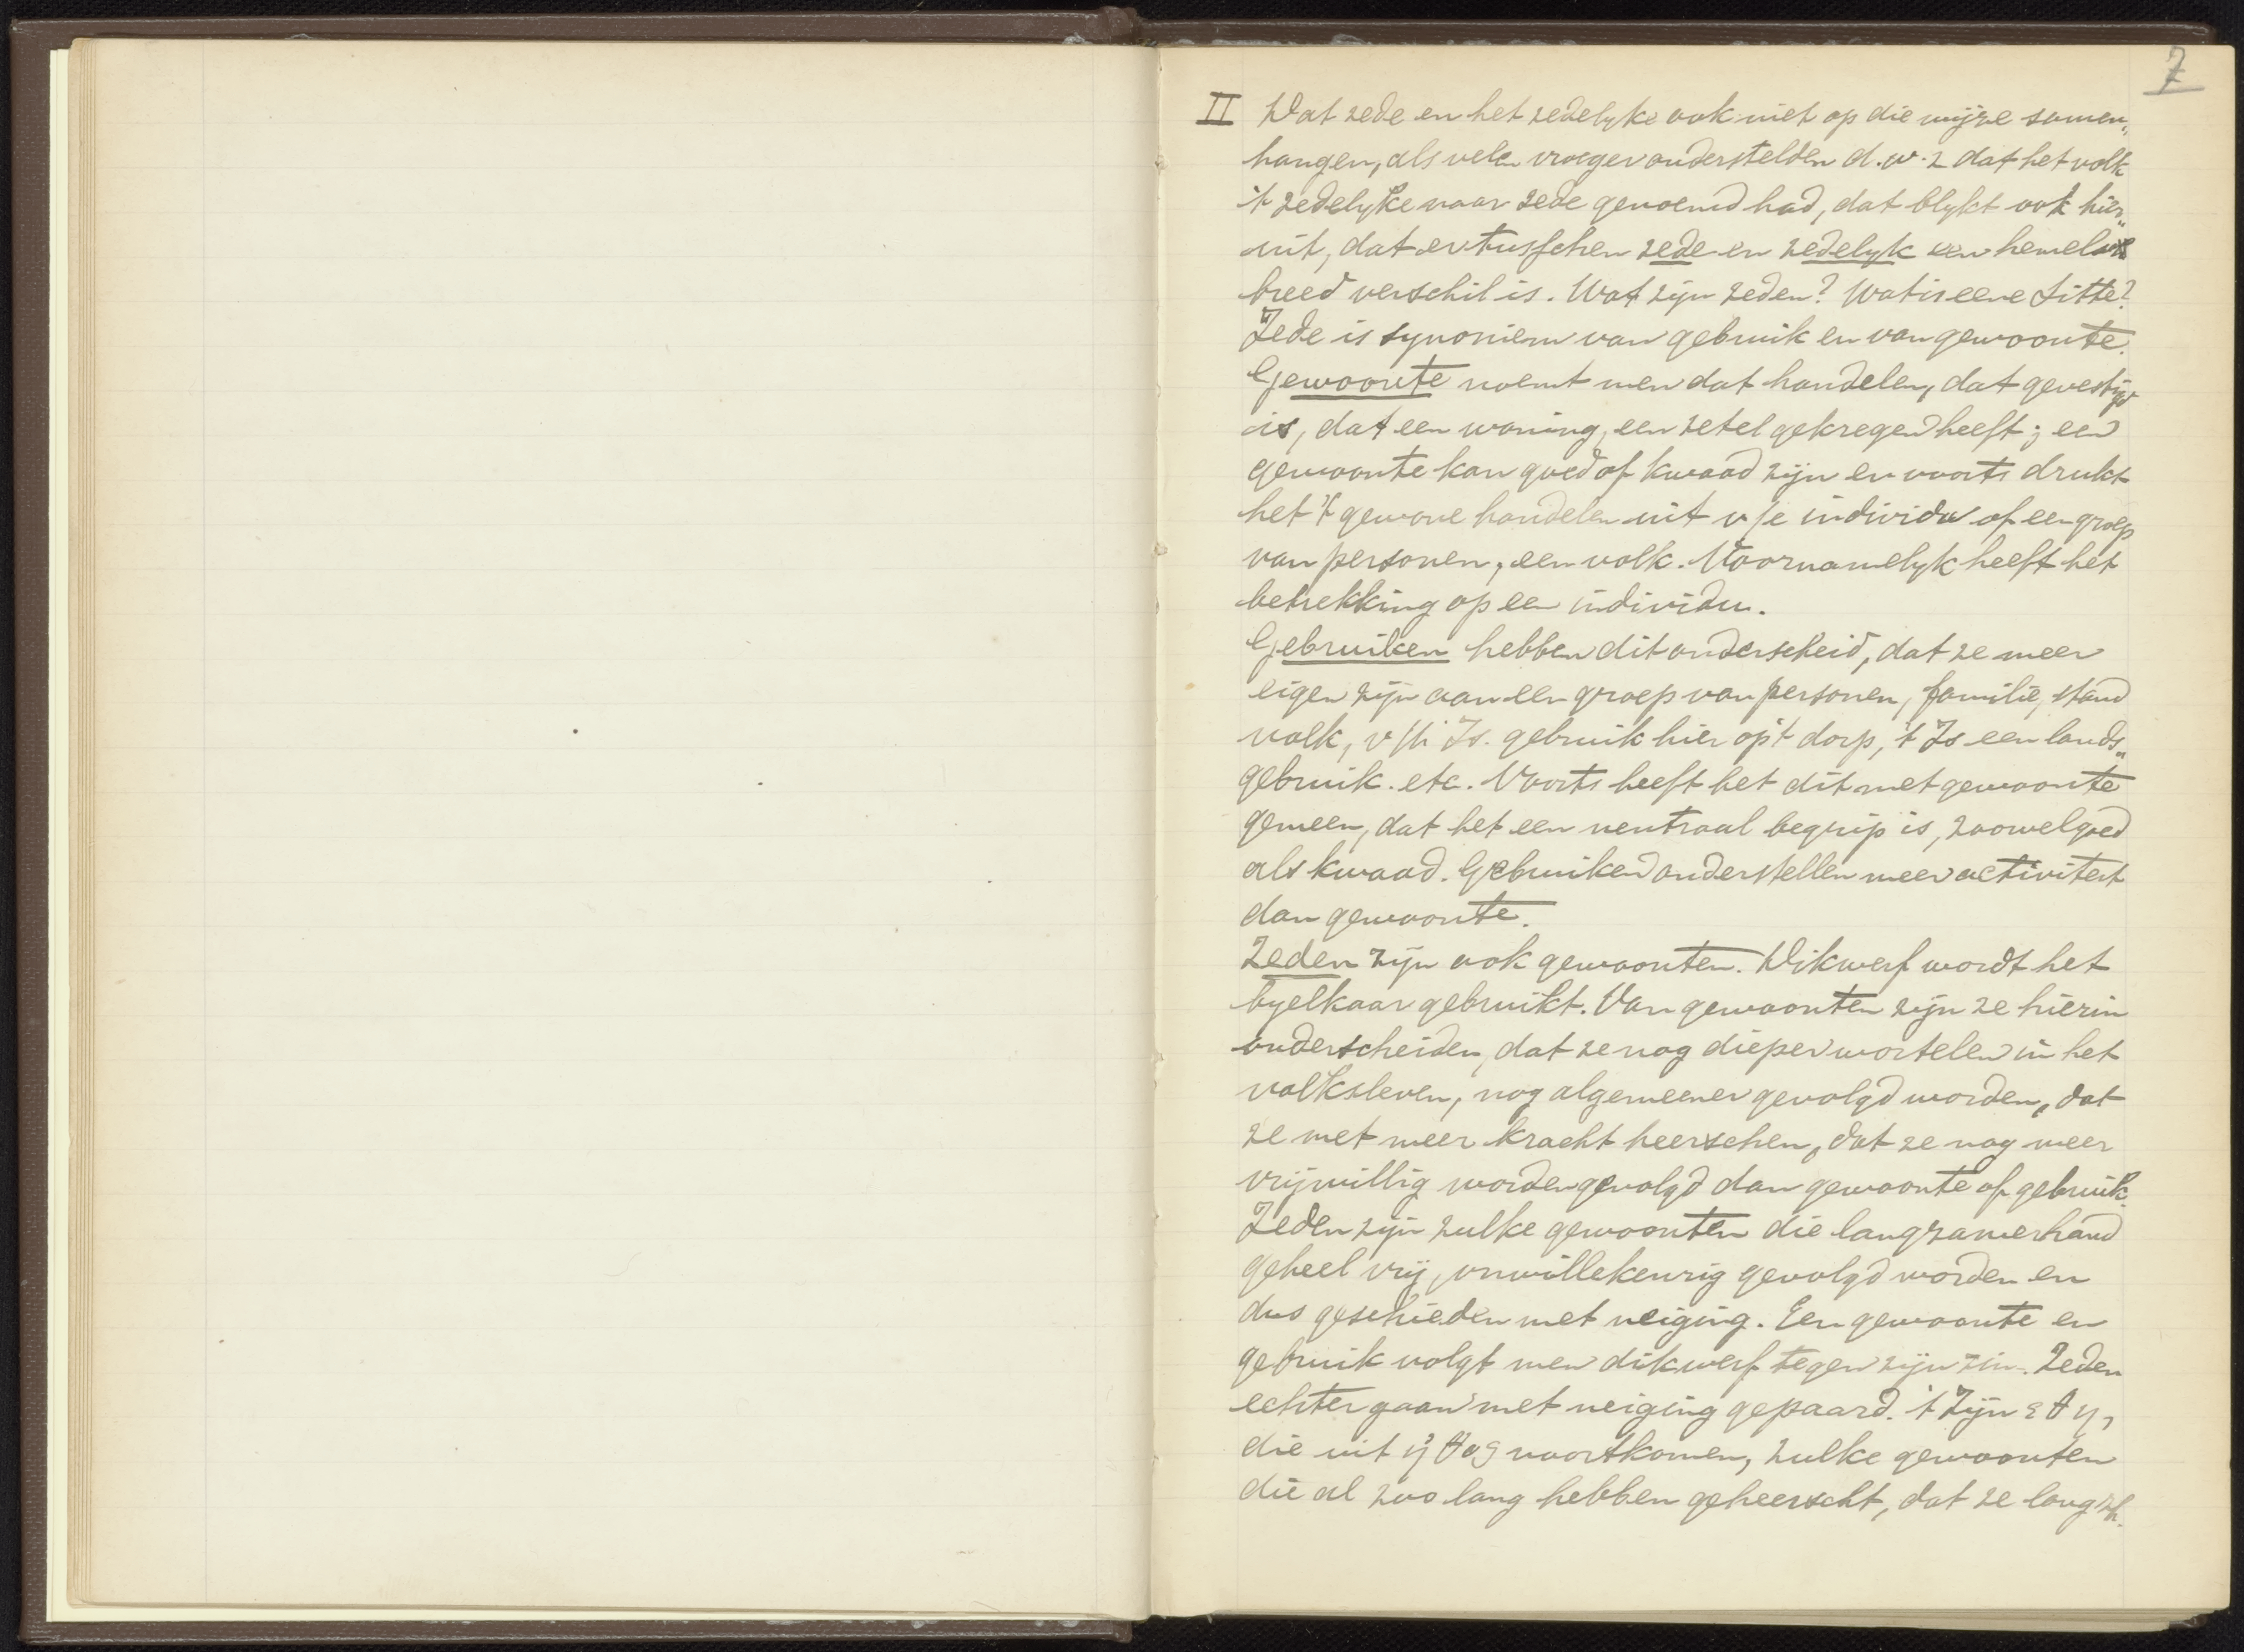 7
II Dat zede en het zedelyke ook niet op die wijze samen„
hangen, als velen vroeger onderstelden d.w.z dat het volk
't zedelyke naar zede genoemd had, dat blykt ook hier„
uit, dat er tusschen zede en zedelyk een hemels
breed verschil is. Wat zijn zeden? Wat is eene Sitte?
Zede is synoniem van gebruik en van gewoonte.
Gewoonte noemt men dat handelen, dat gevestigd
is, dat een woning, een zetel gekregen heeft; een
gewoonte kan goed of kwaad zijn en voorts drukt
het 't gewone handelen uit v/e individu of een groep
van personen, een volk. Voornamelyk heeft het
betrekking op een individu.
Gebruiken hebben dit onderscheid, dat ze meer
eigen zijn aan een groep van personen, familie, stand
volk, Is. gebruik hier op 't dorp, 't Is een lands„
gebruik. etc. Voorts heeft het dit met gewoonte
gemeen, dat het een neutraal begrip is, zoowel goed
als kwaad. Gebruiken onderstellen meer activiteit
dan gewoonte.
Zeden zijn ook gewoonten. Dikwerf wordt het
byelkaar gebruikt. Van gewoonten zijn ze hierin
onderscheiden, dat ze nog dieper wortelen in het
volksleven, nog algemeener gevolgd worden, dat
ze met meer kracht heerschen, dat ze nog meer
vrijwillig worden gevolgd dan gewoonte of gebruik.
Zeden zijn zulke gewoonten die langzamerhand
geheel vrij, onwillekeurig gevolgd worden en
dus geschieden met neiging. Een gewoonte en
gebruik volgt men dikwerf tegen zijn zin. Zeden
echter gaan met neiging gepaard. 't Zijn ἐθη,
die uit ἠθος voortkomen, zulke gewoonten
die al zoo lang hebben geheerscht, dat ze langzh.